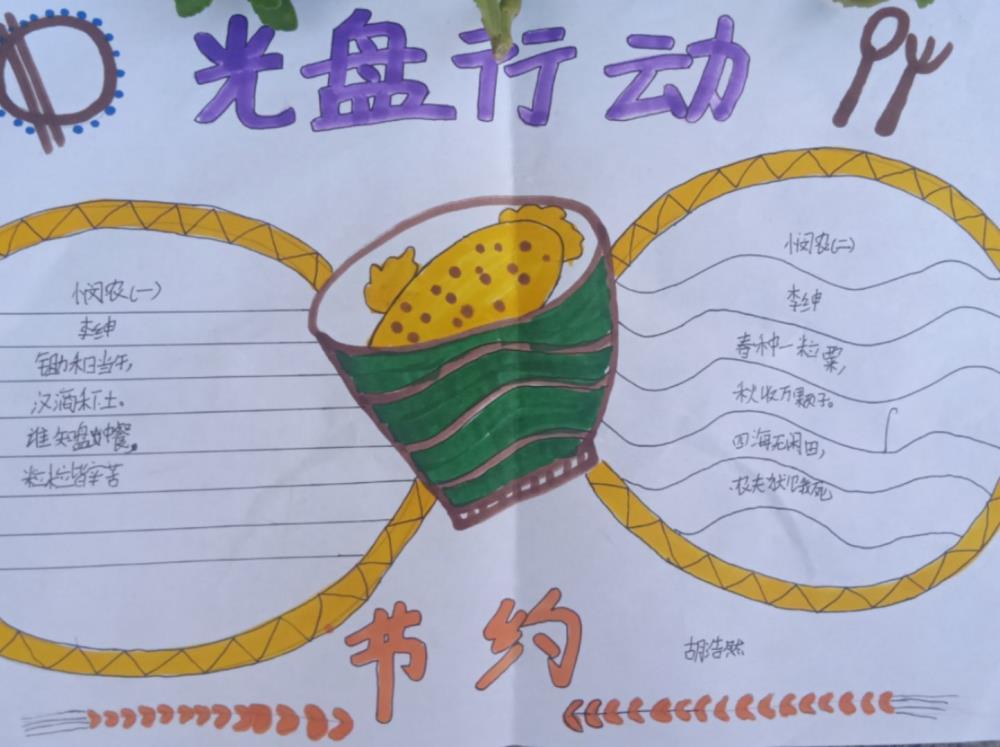 光盘行动
悯农(一)
李绅
锄禾日当午,
汗滴禾下土。
谁知盘中餐。
粒粒皆辛苦
悯农(二)
李绅
春种一粒粟,
秋收万颗子。
四海无闲田,
农夫犹饿死
节约
胡浩然